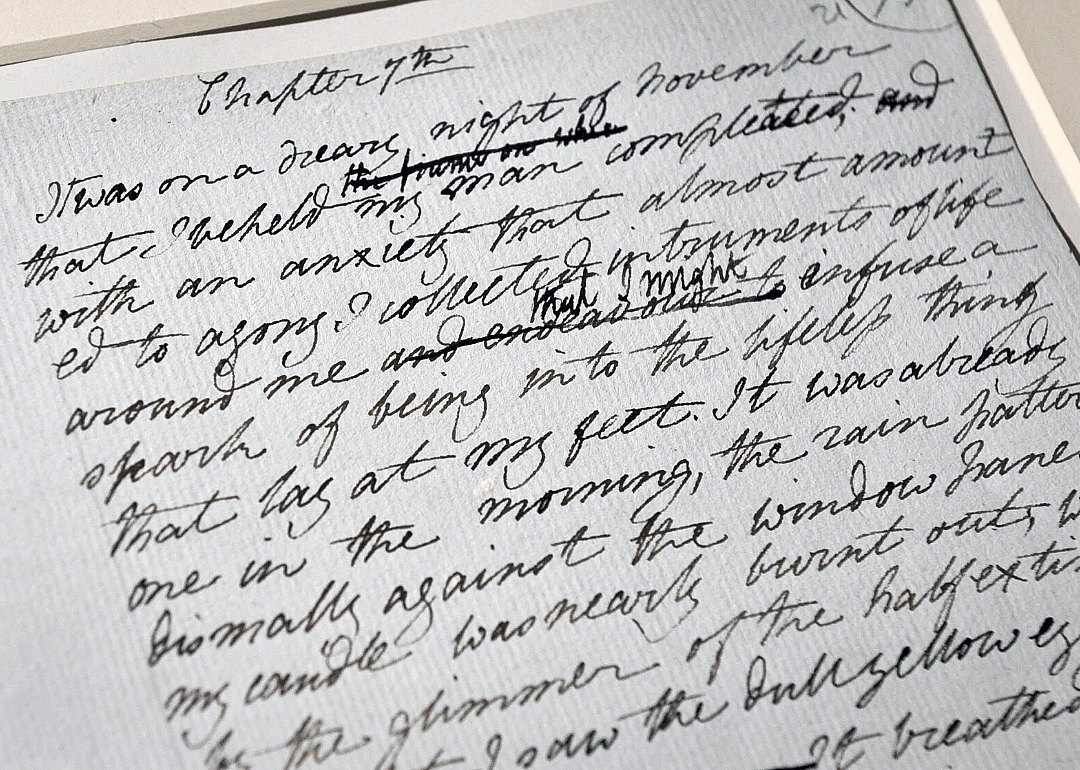 Chapter 7th
It was on a dreary night of November
that I beheld my man compleated, and
with an anxiety that almost amount
ed to agony I collected intruments of life
that I might
around me and endeavour to infuse a
spark of being into the lifeless thing
that lay at my feet. It was already
one in the morning, the rain patter
dismally against the window panes
my candle was nearly burnt out,
by the glimmer of the half exti
I saw the dull yellow ey
It breathed